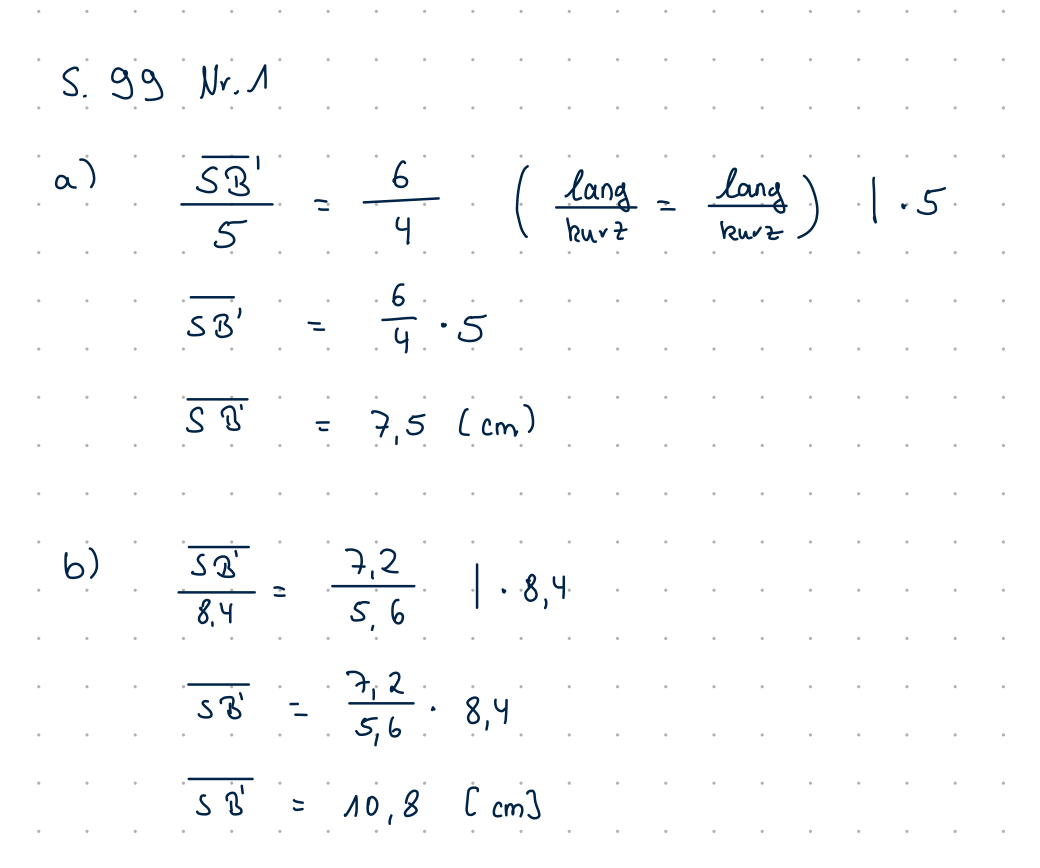 S. 99 Nr. 1
a) $\frac{\overline{SB'}}{5} = \frac{6}{4} \left( \frac{\text{lang}}{\text{kurz}} = \frac{\text{lang}}{\text{kurz}} \right) | \cdot 5$
$\overline{SB'} = \frac{6}{4} \cdot 5$
$\overline{SB'} = 7,5 (cm)$
b) $\frac{\overline{SB'}}{8,4} = \frac{7,2}{5,6} | \cdot 8,4$
$\overline{SB'} = \frac{7,2}{5,6} \cdot 8,4$
$\overline{SB'} = 10,8 [cm]$